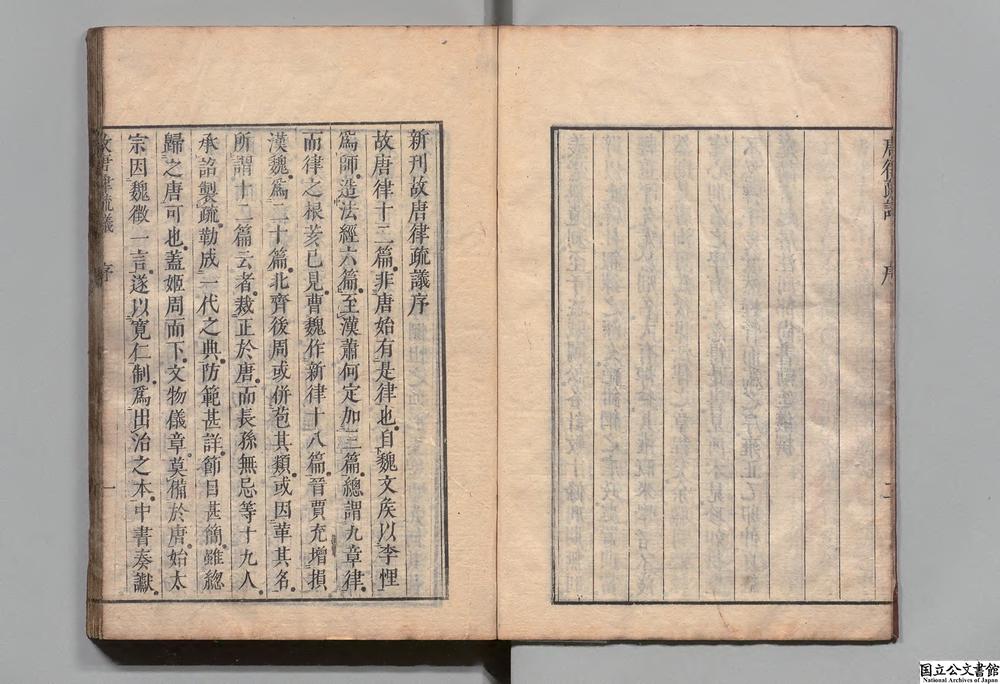 新刊故唐律疏議序
故唐律十二篇非唐始有是律也自魏文矦以李悝
爲師造法經六篇至漢蕭何定加三篇總謂九章律
而律之根荄已見曹魏作新律十八篇晉賈充增損
漢魏爲二十篇北齊後周或併苞其類或因革其名
所謂十二篇云者裁正於唐而長孫無忌等十九人
承詔製疏勒成一代之典防範甚詳節目甚簡雖總
歸之唐可也蓋姬周而下文物儀章莫備於唐始太
宗因魏徵一言遂以寬仁制爲出治之本中書奏讞
故唐律疏議 序 一
国立公文書館
National Archives of Japan